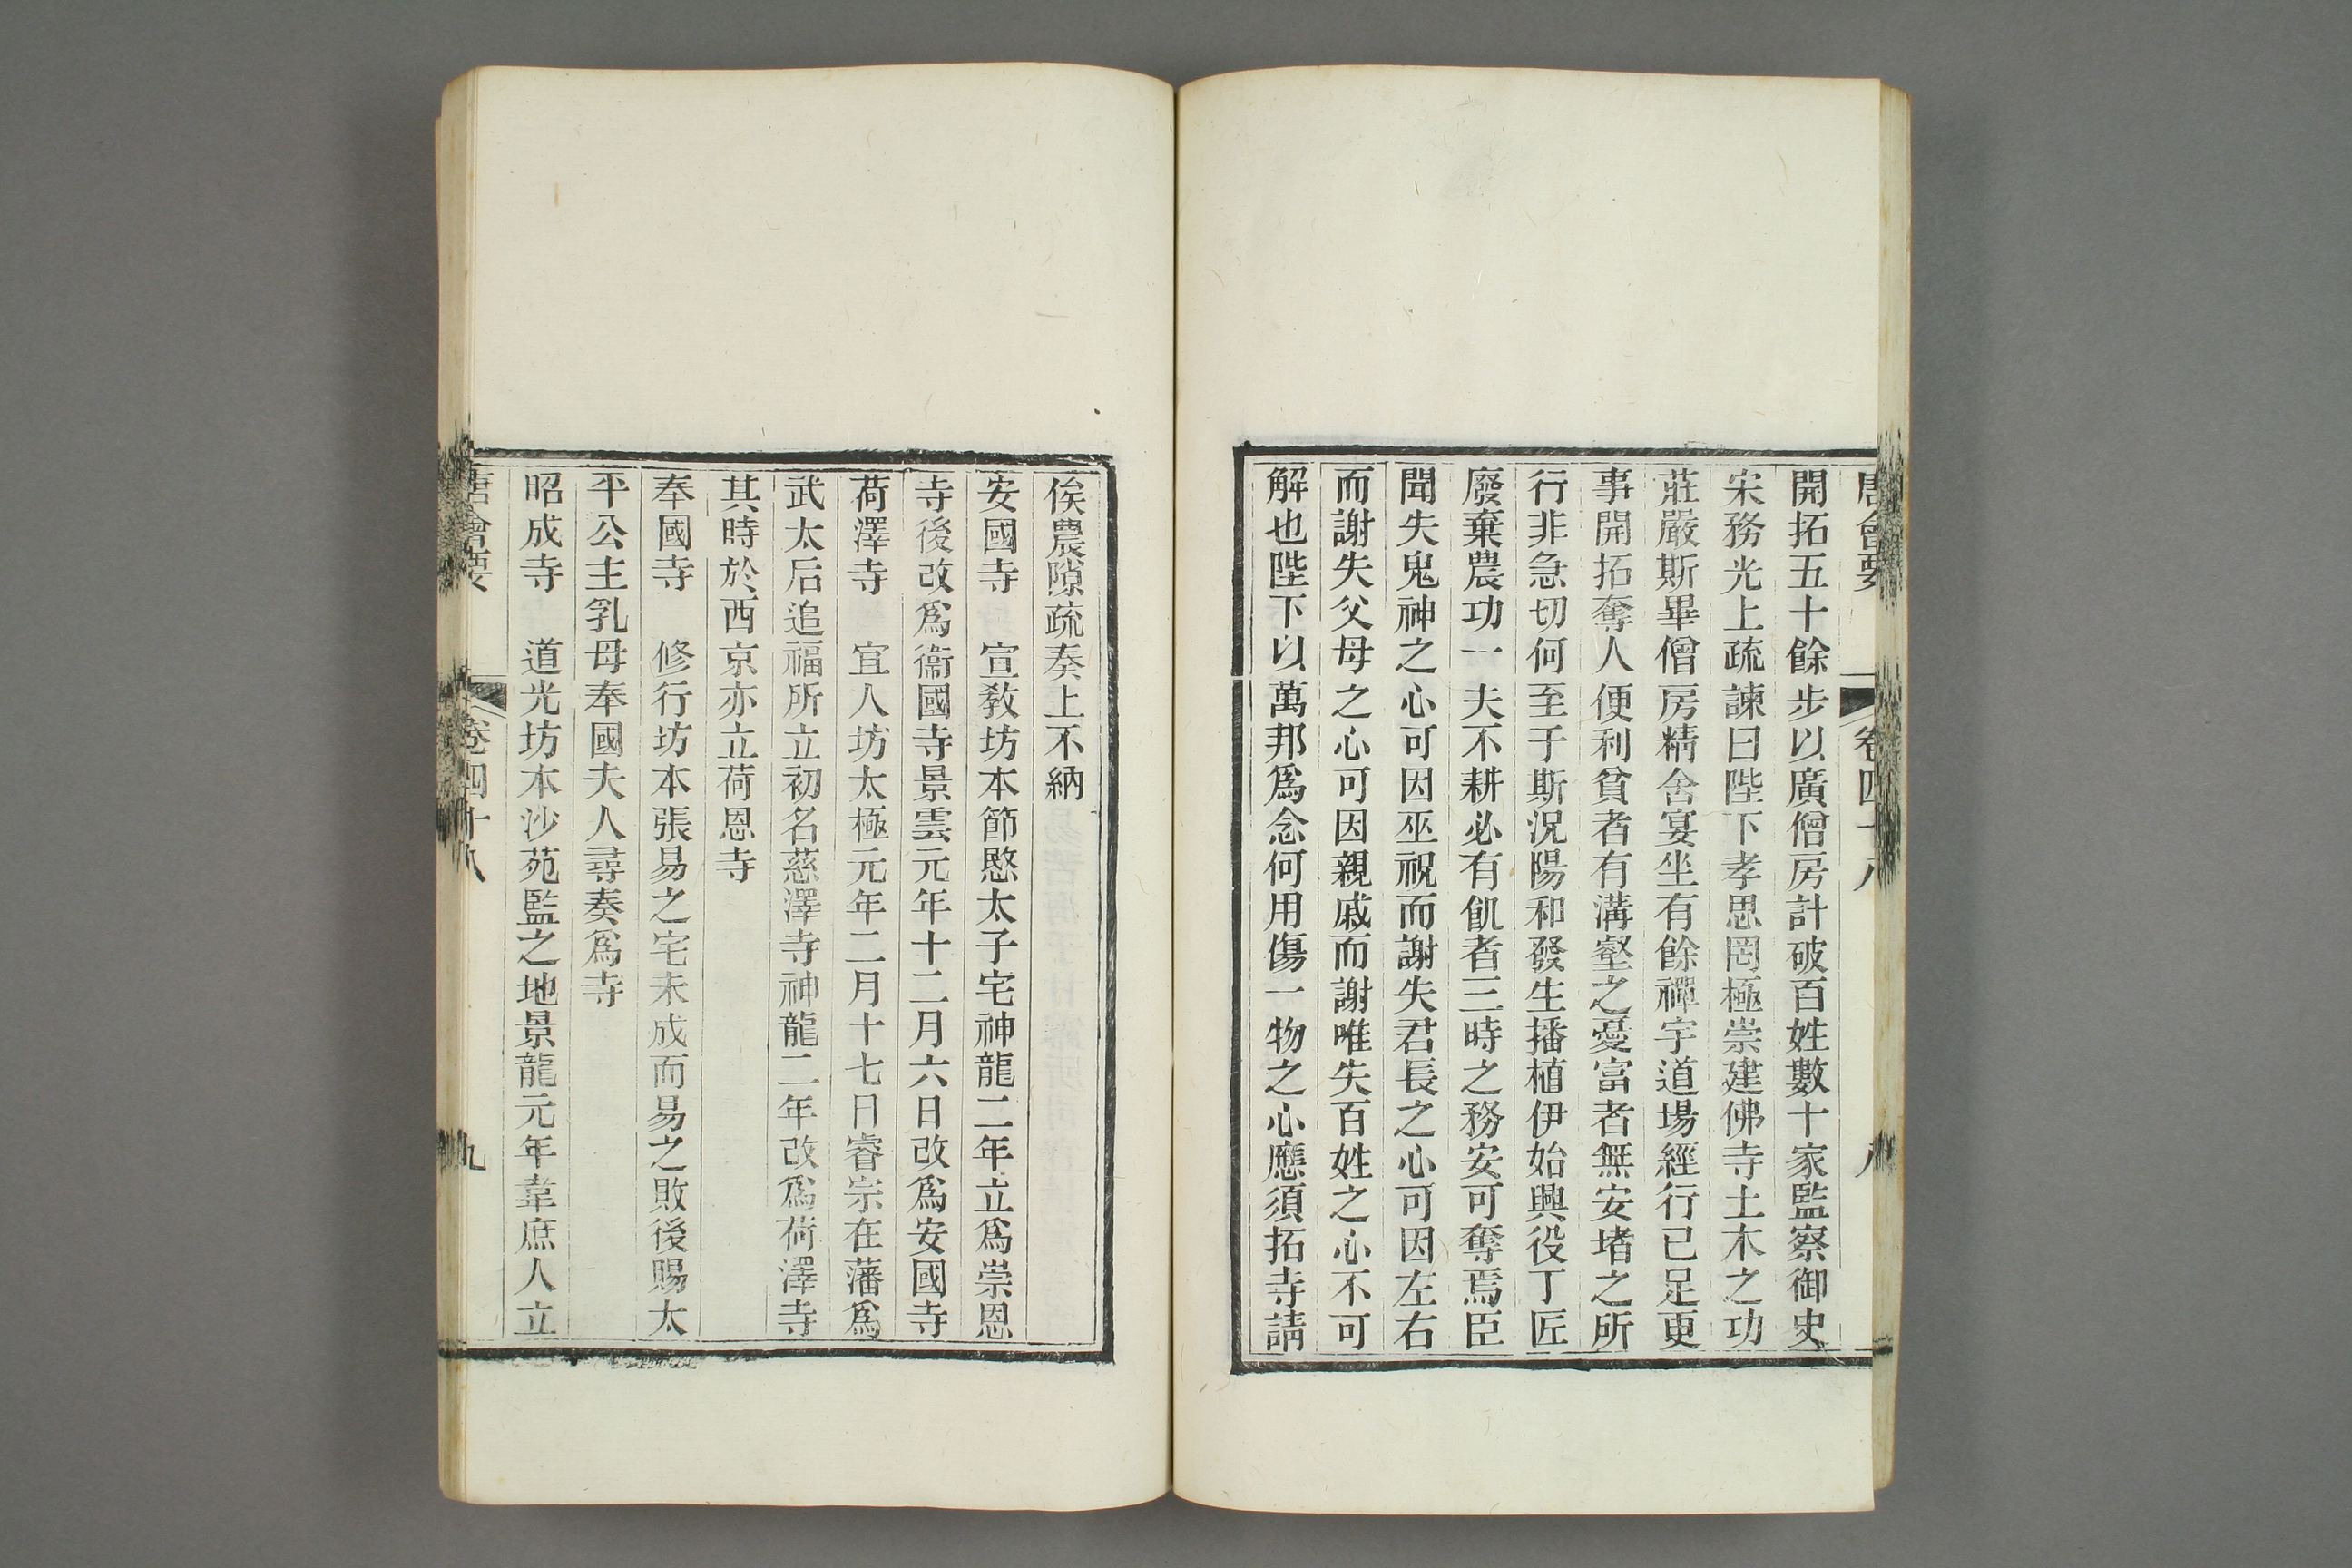 唐會要 卷四十八 八
開拓五十餘步以廣僧房計破百姓數十家監察御史
宋務光上疏諫曰陛下孝思罔極崇建佛寺土木之功
莊嚴斯畢僧房精舍宴坐有餘禪宇道場經行已足更
事開拓奪人便利貧者有溝壑之憂富者無安堵之所
行非急切何至于斯況陽和發生播植伊始興役丁匠
廢棄農功一夫不耕必有飢者三時之務安可奪焉臣
聞失鬼神之心可因巫祝而謝失君長之心可因左右
而謝失父母之心可因親戚而謝唯失百姓之心不可
解也陛下以萬邦爲念何用傷一物之心應須拓寺請
俟農隙疏奏上不納
安國寺 宣敎坊本節愍太子宅神龍二年立爲崇恩
寺後改爲衞國寺景雲元年十二月六日改爲安國寺
荷澤寺 宜人坊太極元年二月十七日睿宗在藩爲
武太后追福所立初名慈澤寺神龍二年改爲荷澤寺
其時於西京亦立荷恩寺
奉國寺 修行坊本張易之宅未成而易之敗後賜太
平公主乳母奉國夫人尋奏爲寺
昭成寺 道光坊本沙苑監之地景龍元年韋庶人立
唐會要 卷四十八 九